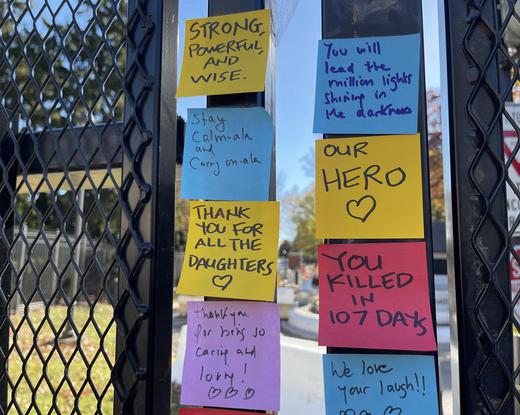 STRONG,
POWERFUL,
AND
WISE.
Stay
Calm-ala
and
Carry on-ala
THANK
YOU FOR
ALL THE
DAUGHTERS
Thank you
for being so
caring and
loving!
You will
lead the
million lights
shining in
the darkness
OUR
HERO
YOU
KILLED
IN
107 DAYS
We love
your laugh!!